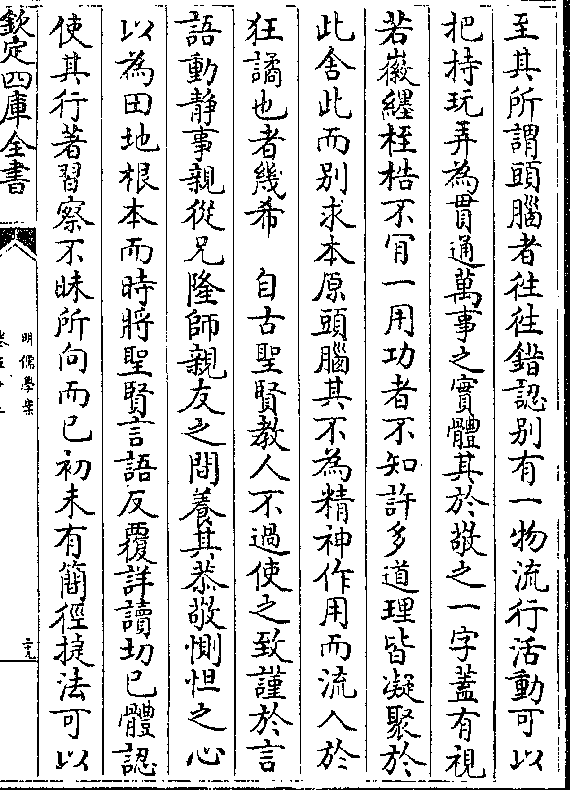 至其所謂頭腦者往往錯認别有一物流行活動可以
把持玩弄為貫通萬事之實體其於敬之一字葢有視
若徽纆桎梏不肎一用功者不知許多道理皆凝聚於
此舍此而别求本原頭腦其不為精神作用而流入於
狂譎也者幾希　自古聖賢教人不過使之致謹於言
語動静事親從兄隆師親友之間養其恭敬惻怛之心
以為田地根本而時將聖賢言語反覆詳讀切已體認
使其行著習察不昧所向而已初未有簡徑捷法可以
欽定四庫全書
明儒學案